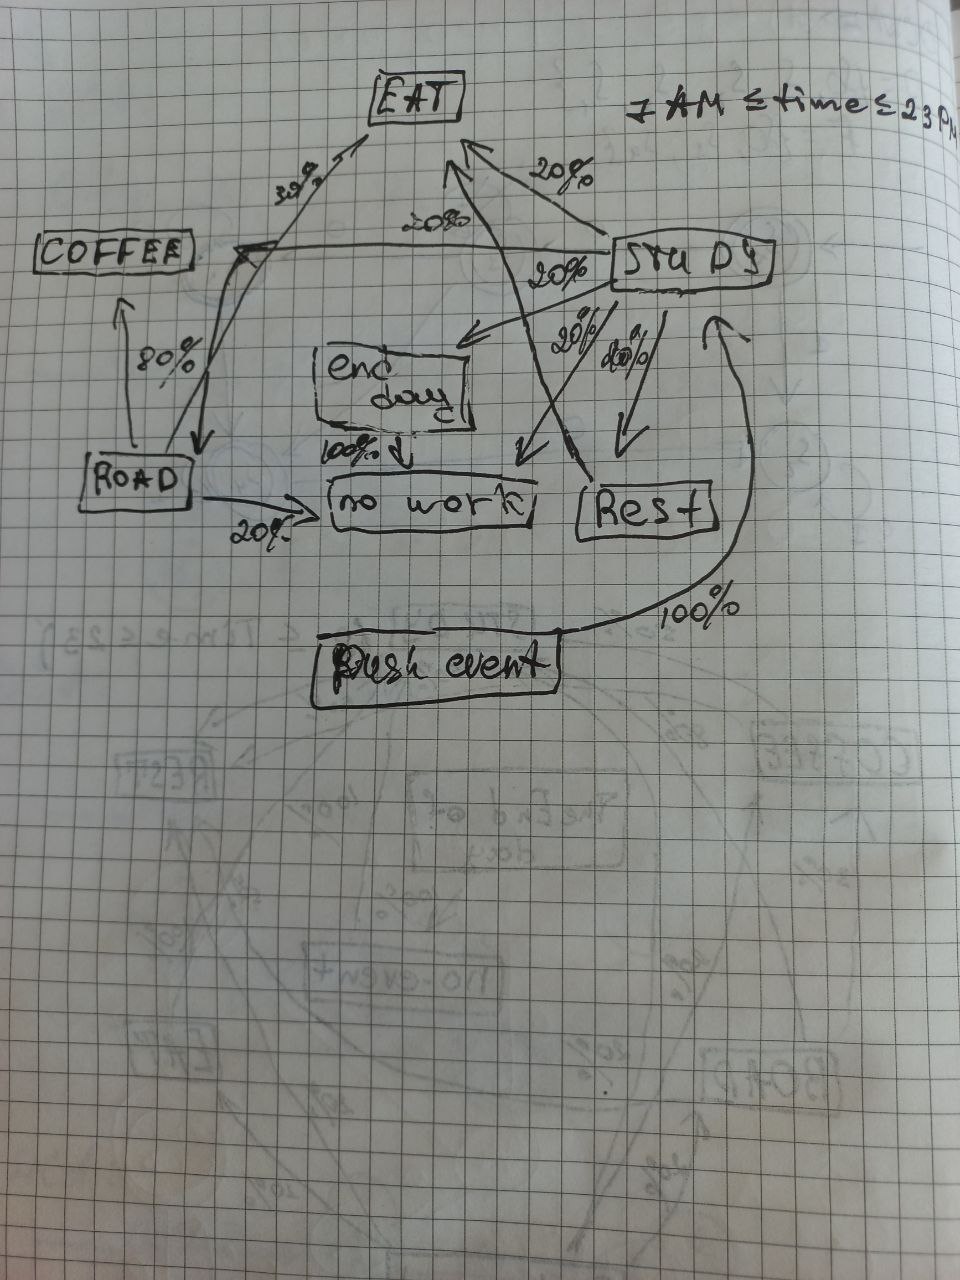 EAT
7 AM ≤ time ≤ 23 PM
20%
20%
COFFEE
STUDY
20%
20%
80%
end
day
100%
ROAD
no work
Rest
20%
100%
Push event